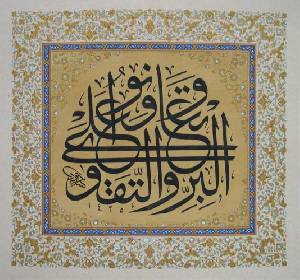 وتعاونوا على البر والتقوى